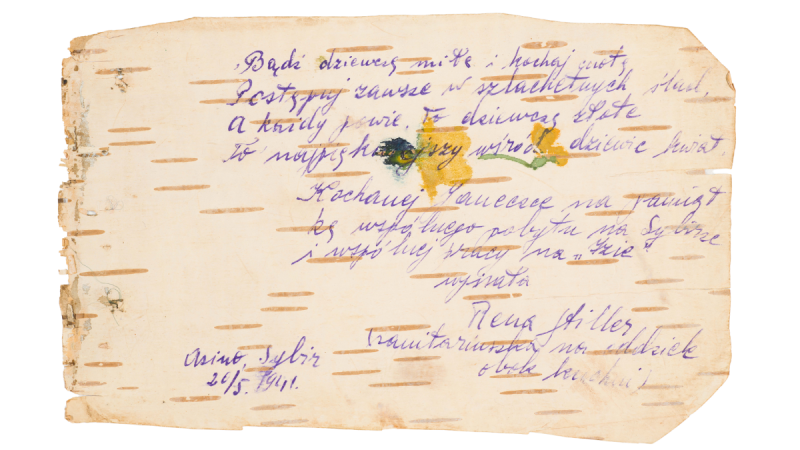 Bądź dziewczą miłą i kochaj cnotę
Postępuj zawsze w szlachetnych ślad,
A każdy powie, to dziewczą złote
To najpiękniejszy wśród dziewic kwiat.
Kochanej Janeczce na pamiąt
kę wspólnego pobytu na Sybirze
i wspólnej pracy na „Izie"
wpisała
Rena Stiller
(sanitariuszka na oddziele
obok kuchni)
Asino, Sybir
26/5. 1941.